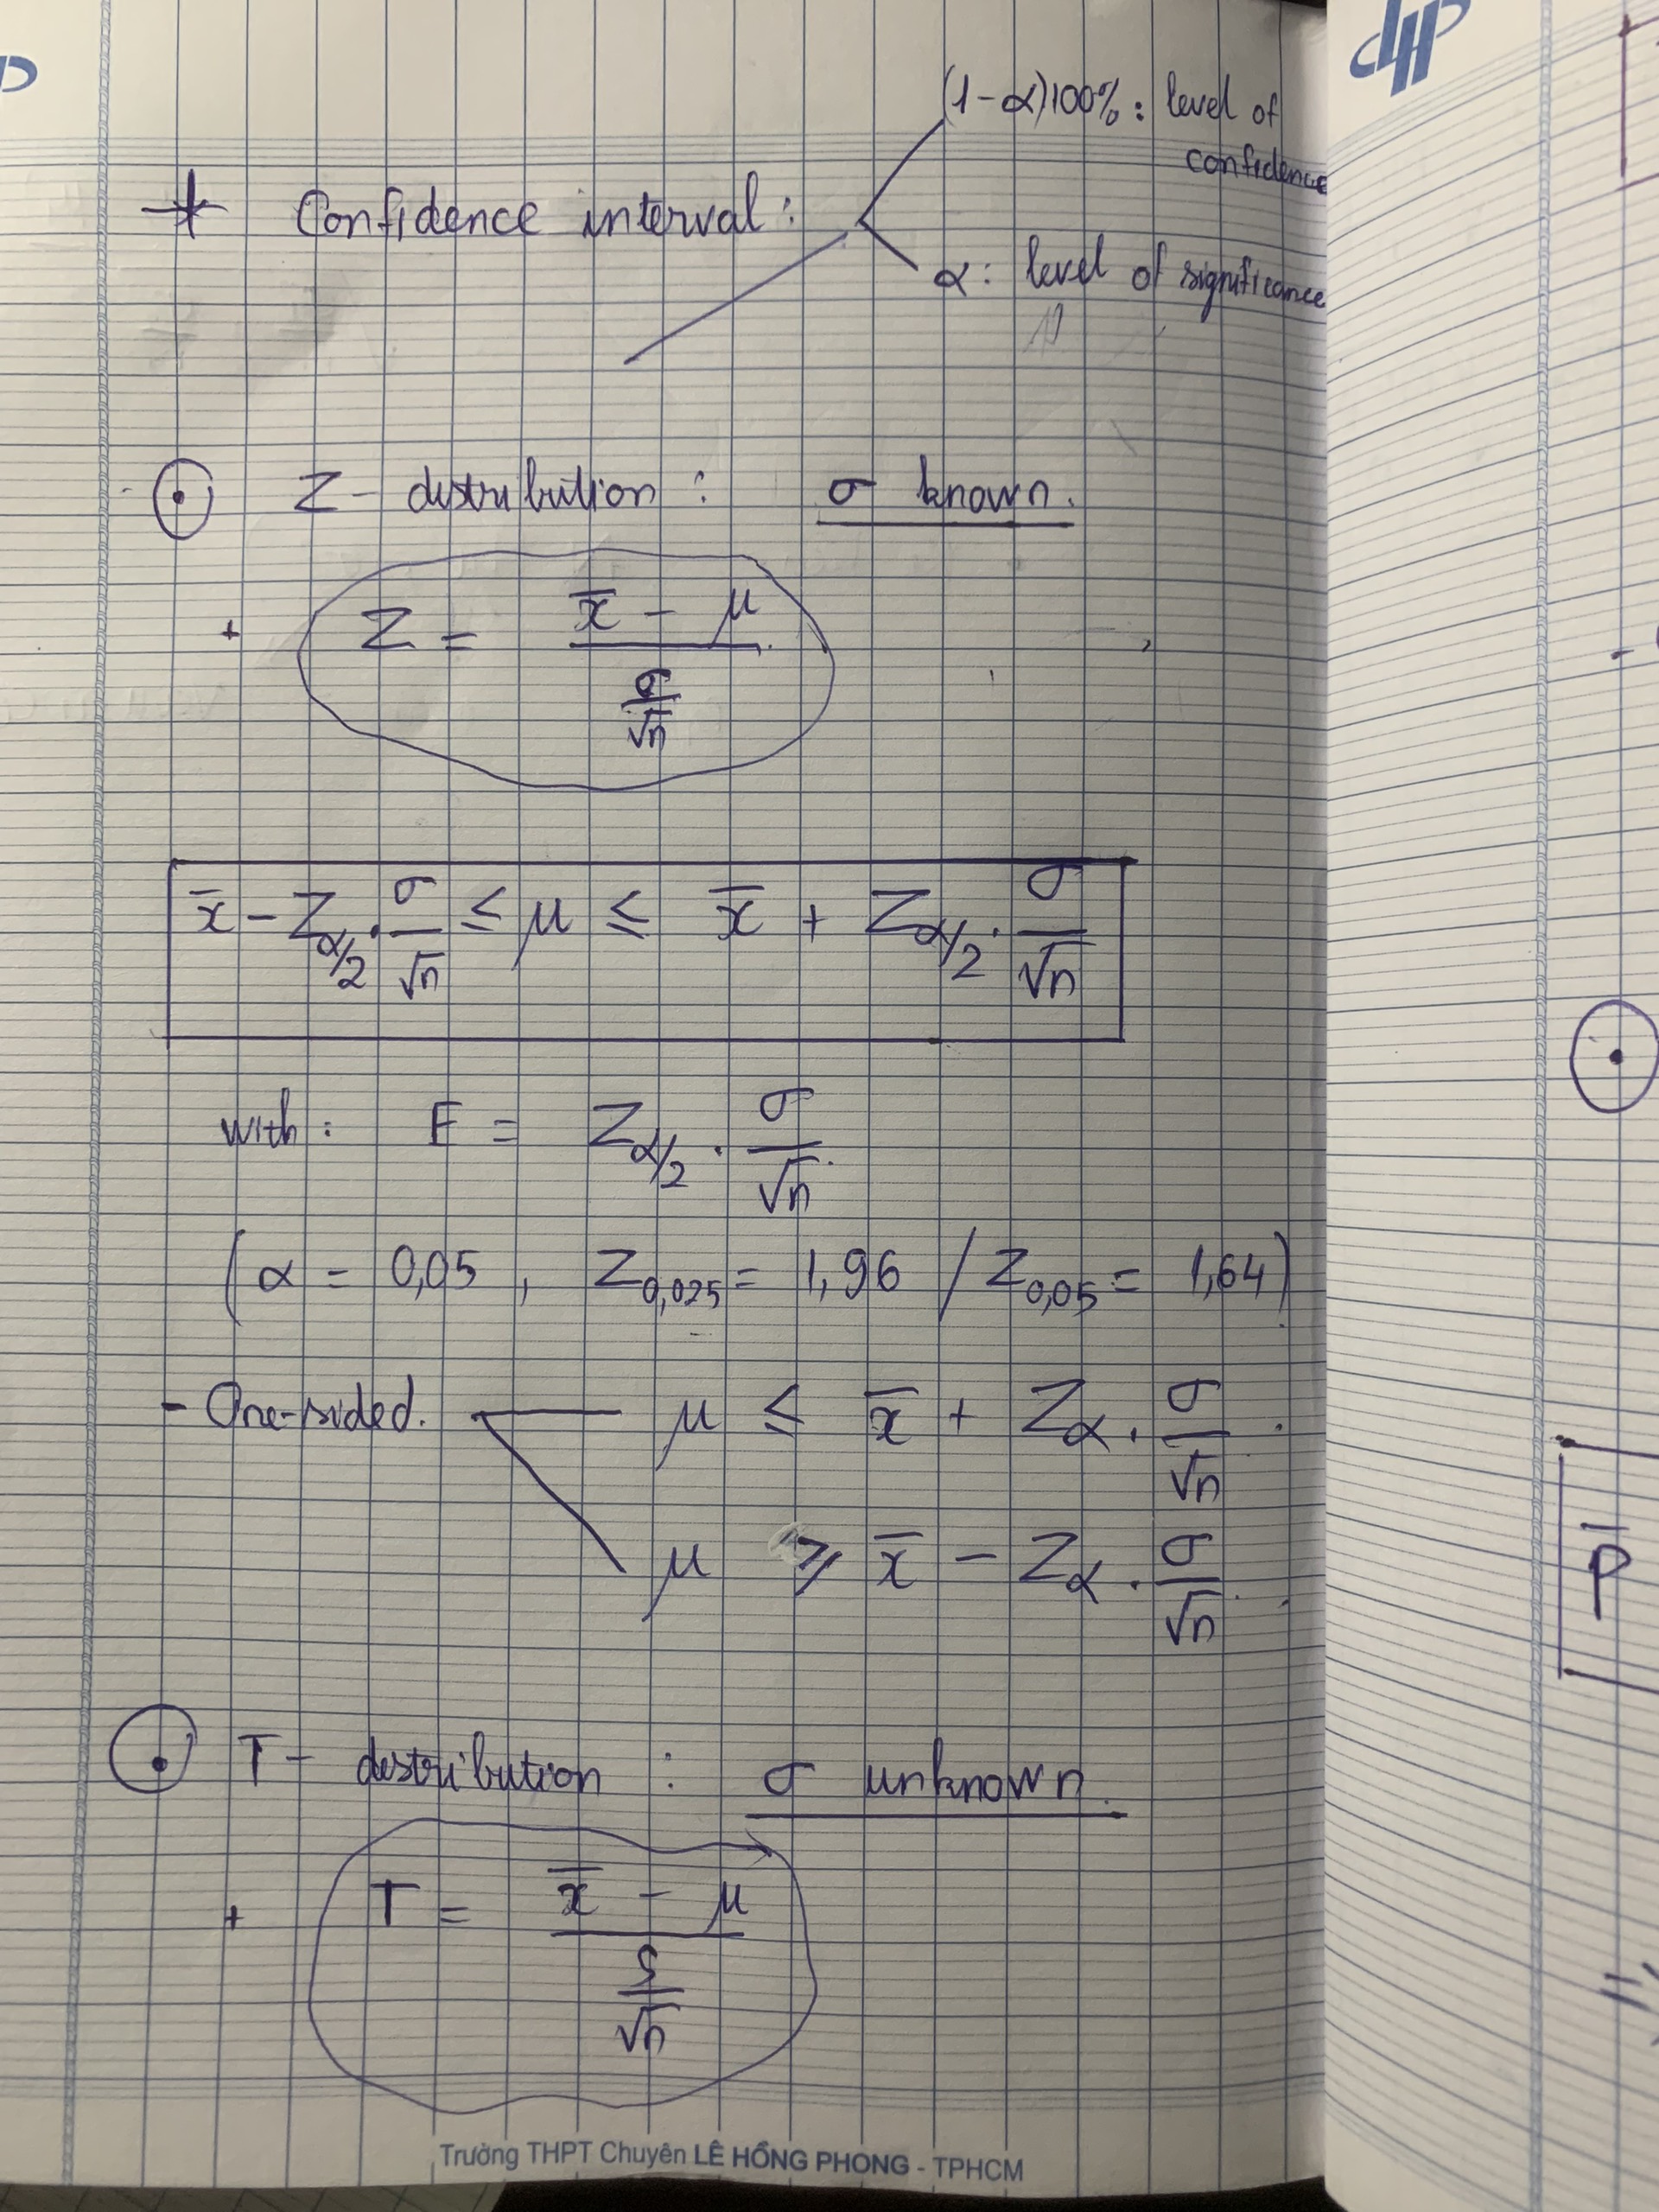 (1-α)100% : level of
confidence
* Confidence interval :
α : level of significance
⊙ Z - distribution : σ known.
+ Z = (x̄ - μ) / (σ/√n)
x̄ - Z_α/2 · σ/√n ≤ μ ≤ x̄ + Z_α/2 · σ/√n
with : E = Z_α/2 · σ/√n
(α = 0,05 , Z_0,025 = 1,96 / Z_0,05 = 1,64)
- One-sided. μ ≤ x̄ + Z_α · σ/√n
μ ≥ x̄ - Z_α · σ/√n
⊙ T - distribution : σ unknown.
+ T = (x̄ - μ) / (s/√n)
Trường THPT Chuyên LÊ HỒNG PHONG - TPHCM
LH
p̄